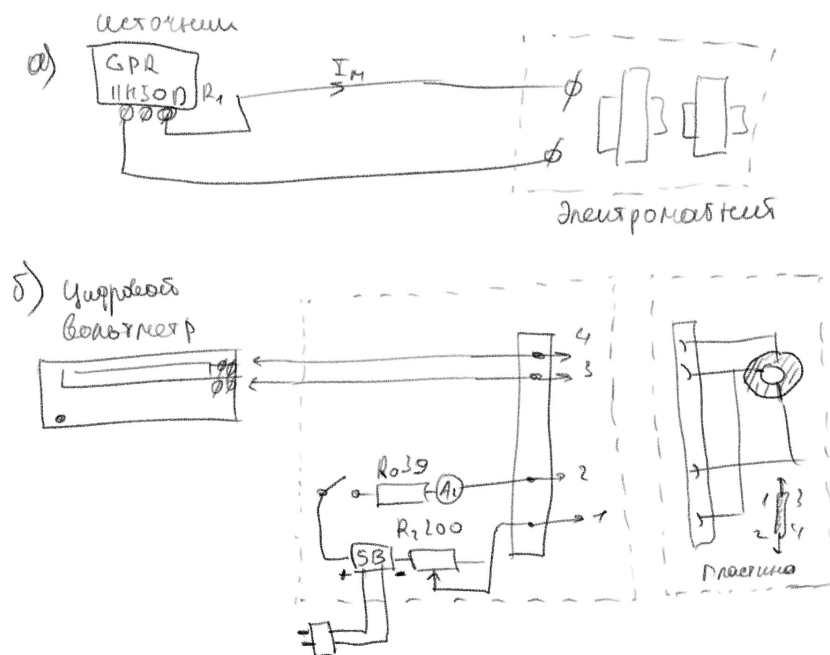 источник
а)
GPR
11H30D
R₁
Iм
Электромагнит
б) Цифровой
вольтметр
4
3
R₀ 39
A₁
2
R₂ 200
1
5В
+
-
1
3
2
4
пластина